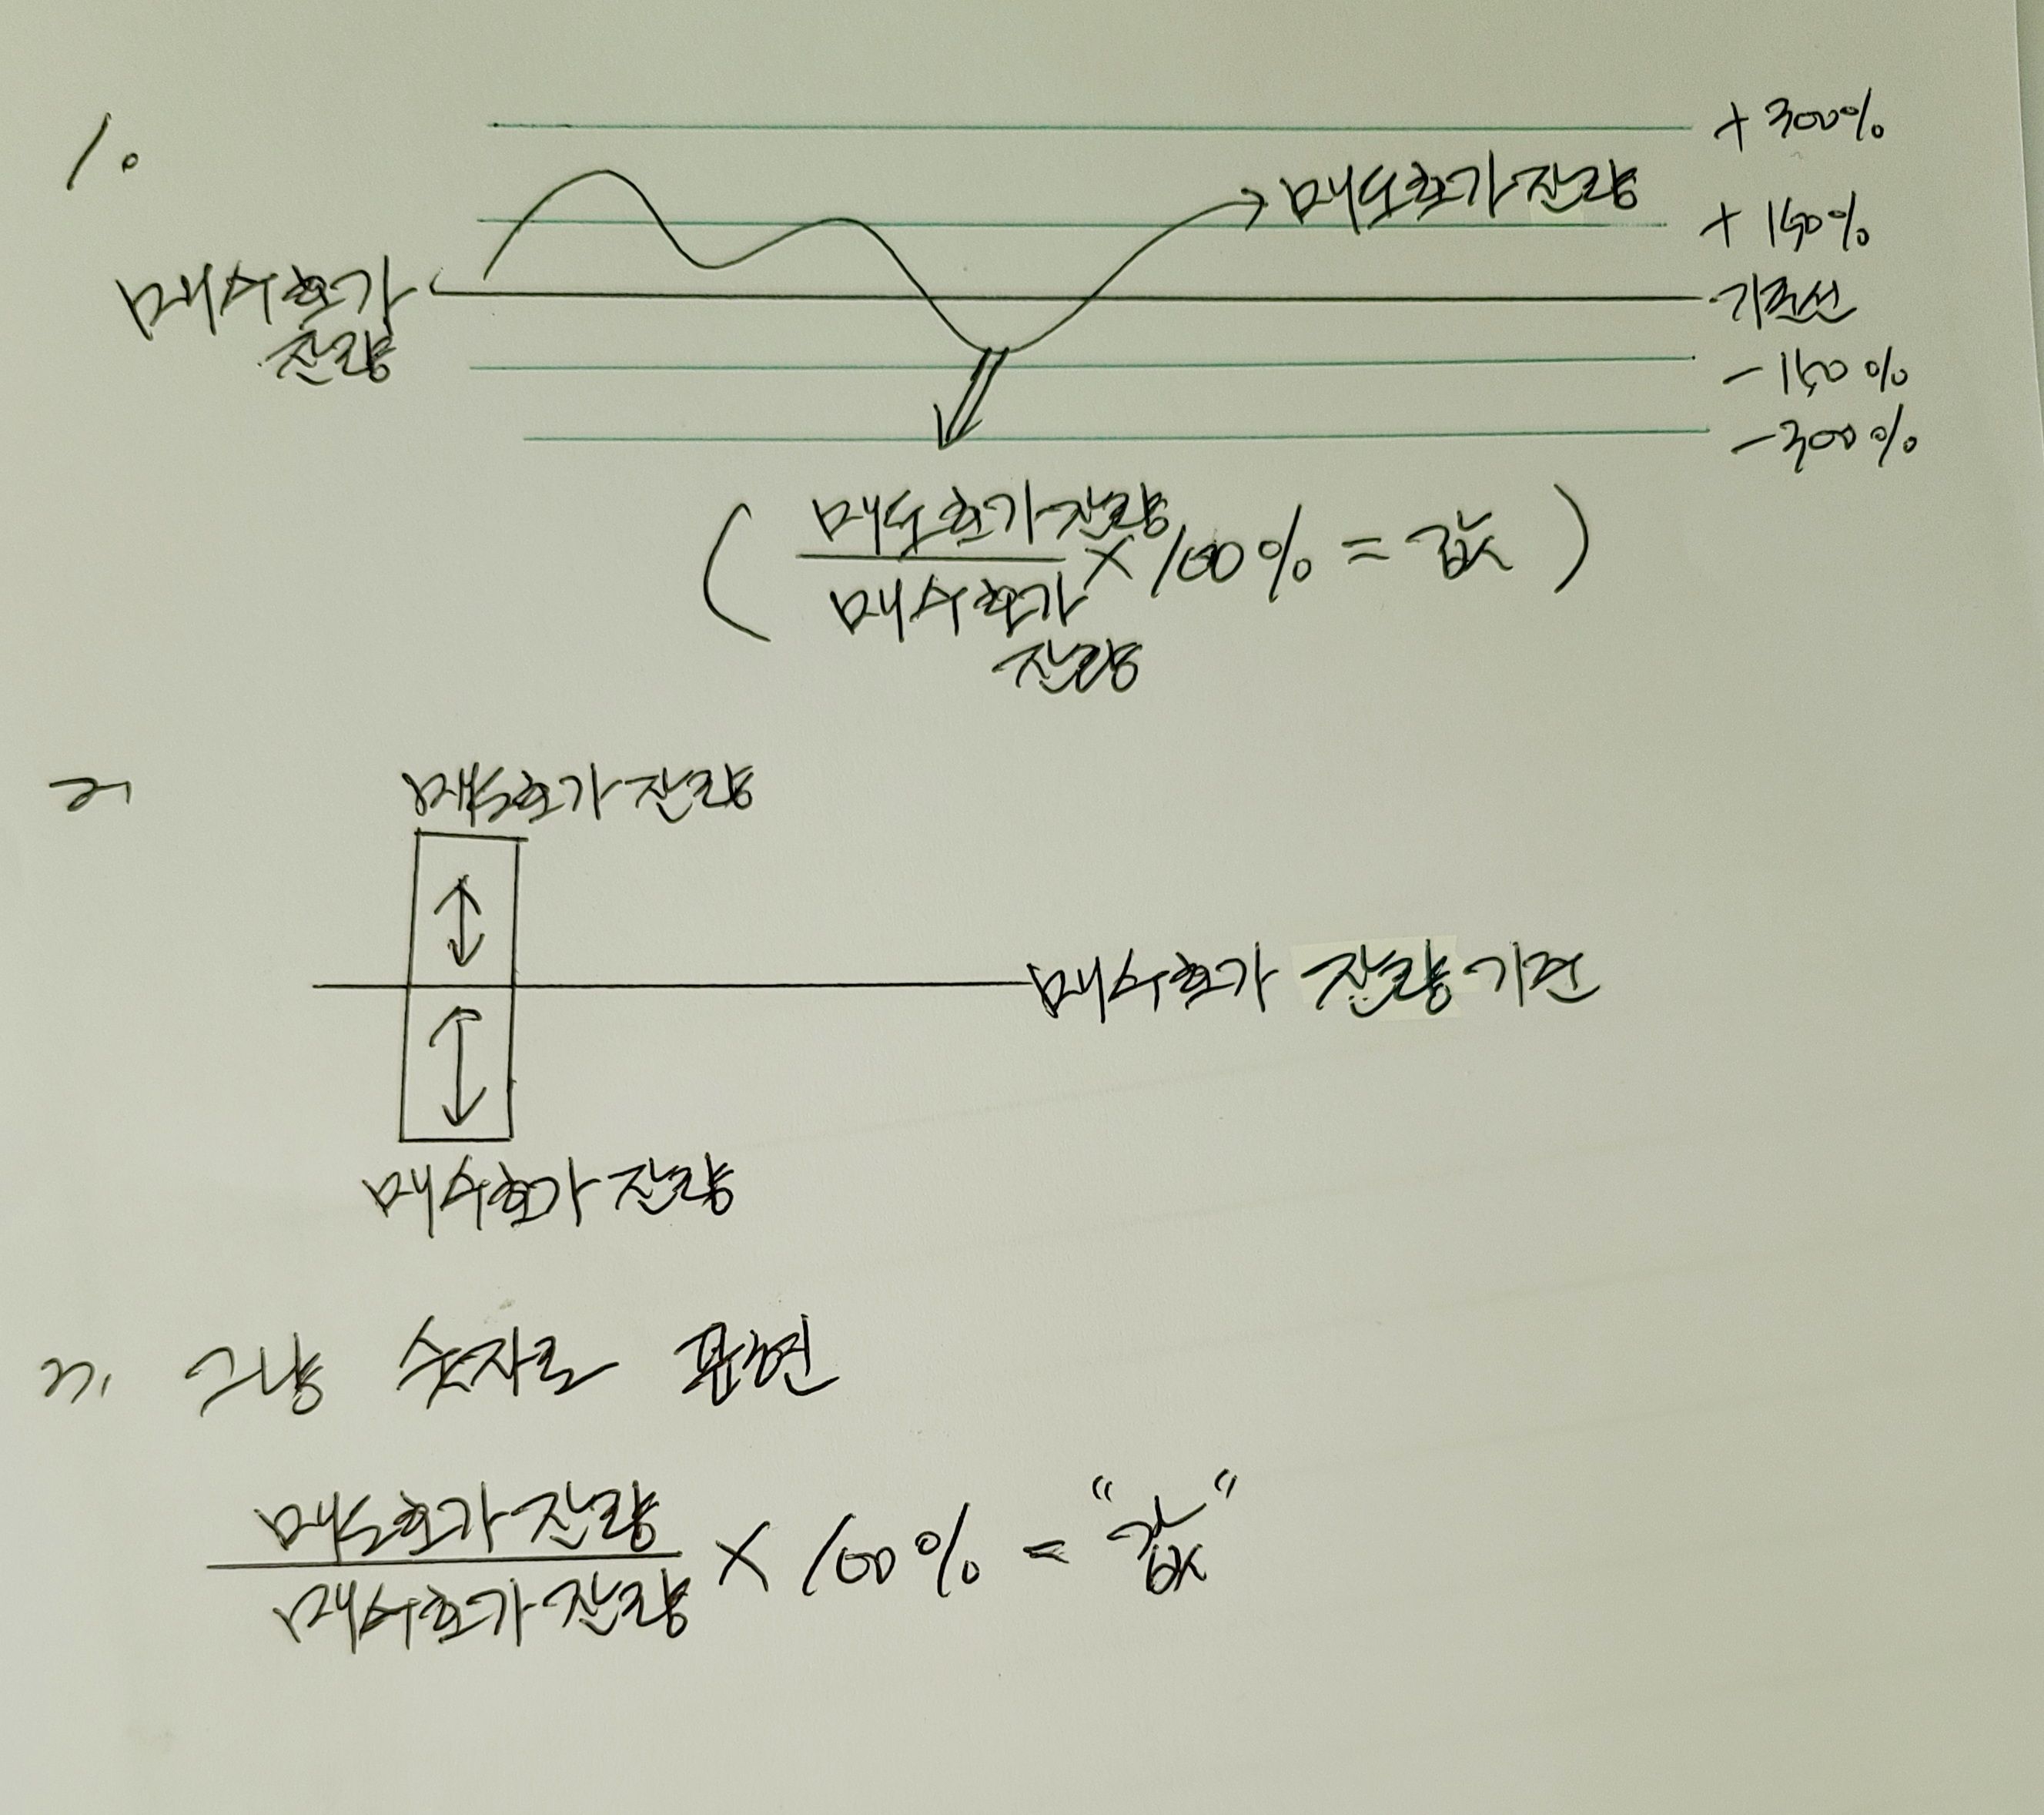 1.
+300%
매도호가 잔량
+150%
매수호가
잔량
기준선
-150%
-300%
( 매도호가잔량
매수호가
잔량
× 100% = 값 )
2.
매도호가 잔량
매수호가 잔량 기준
매수호가 잔량
3. 그냥 숫자로 표현
매도호가 잔량
매수호가 잔량
× 100% = "값"